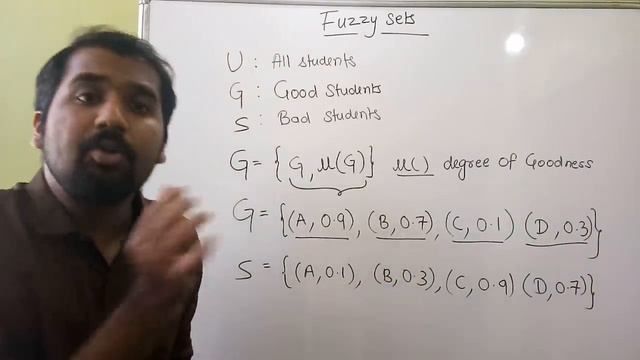 Fuzzy sets
U : All students
G : Good Students
S : Bad students
G = {G, μ(G)} μ() degree of Goodness
G = {(A, 0.9), (B, 0.7), (C, 0.1) (D, 0.3)}
S = {(A, 0.1), (B, 0.3), (C, 0.9) (D, 0.7)}